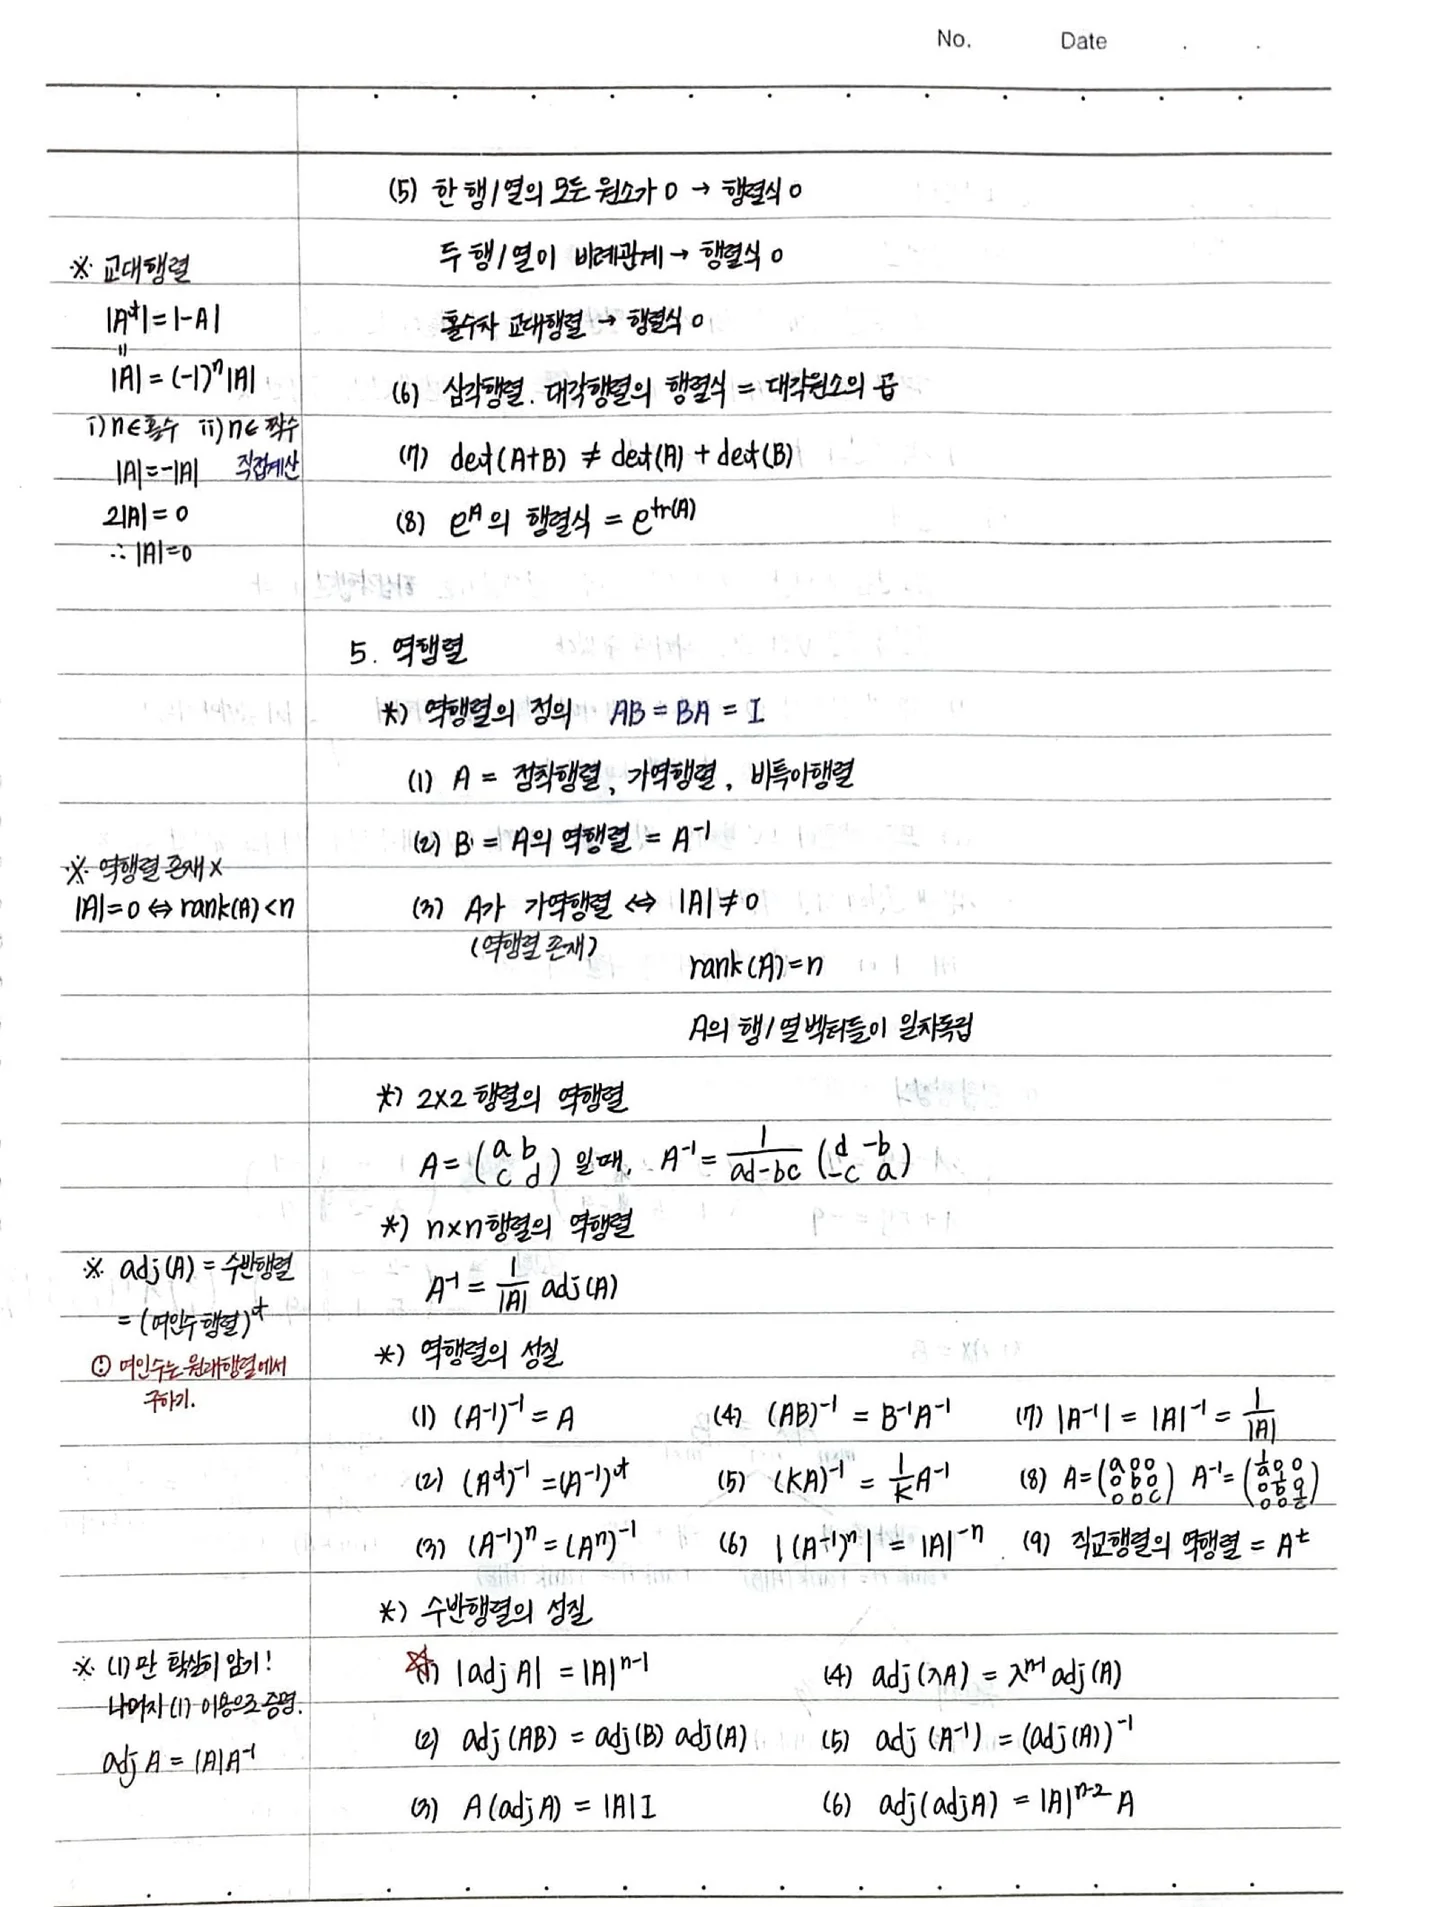 No. Date
(5) 한 행/열의 모든 원소가 0 → 행렬식 0
두 행/열이 비례관계 → 행렬식 0
홀수차 교대행렬 → 행렬식 0
(6) 삼각행렬. 대각행렬의 행렬식 = 대각원소의 곱
(7) det(A+B) ≠ det(A) + det(B)
(8) e^A의 행렬식 = e^tr(A)
※ 교대행렬
|A^t| = |-A|
=
|A| = (-1)^n |A|
i) n∈홀수 ii) n∈짝수
|A| = -|A| 직접계산
2|A| = 0
∴ |A| = 0
5. 역행렬
*) 역행렬의 정의 AB = BA = I
(1) A = 정칙행렬, 가역행렬, 비특이행렬
(2) B = A의 역행렬 = A^-1
(3) A가 가역행렬 ⇔ |A| ≠ 0
(역행렬 존재)
rank(A) = n
A의 행/열벡터들이 일차독립
※ 역행렬 존재 x
|A| = 0 ⇔ rank(A) < n
*) 2x2 행렬의 역행렬
A = (a b / c d) 일때, A^-1 = 1/(ad-bc) (d -b / -c a)
*) nxn행렬의 역행렬
A^-1 = 1/|A| adj(A)
※ adj(A) = 수반행렬
= (여인수행렬)^t
! 여인수는 원래행렬에서
구하기.
*) 역행렬의 성질
(1) (A^-1)^-1 = A (4) (AB)^-1 = B^-1 A^-1 (7) |A^-1| = |A|^-1 = 1/|A|
(2) (A^t)^-1 = (A^-1)^t (5) (kA)^-1 = 1/k A^-1 (8) A = (a 0 0 / 0 b 0 / 0 0 c) A^-1 = (1/a 0 0 / 0 1/b 0 / 0 0 1/c)
(3) (A^-1)^n = (A^n)^-1 (6) |(A^-1)^n| = |A|^-n (9) 직교행렬의 역행렬 = A^t
*) 수반행렬의 성질
☆(1) |adj A| = |A|^n-1 (4) adj(λA) = λ^n-1 adj(A)
(2) adj(AB) = adj(B) adj(A) (5) adj(A^-1) = (adj(A))^-1
(3) A(adj A) = |A| I (6) adj(adj A) = |A|^n-2 A
※ (1)만 확실히 암기!
나머지 (1) 이용으로 증명.
adj A = |A| A^-1